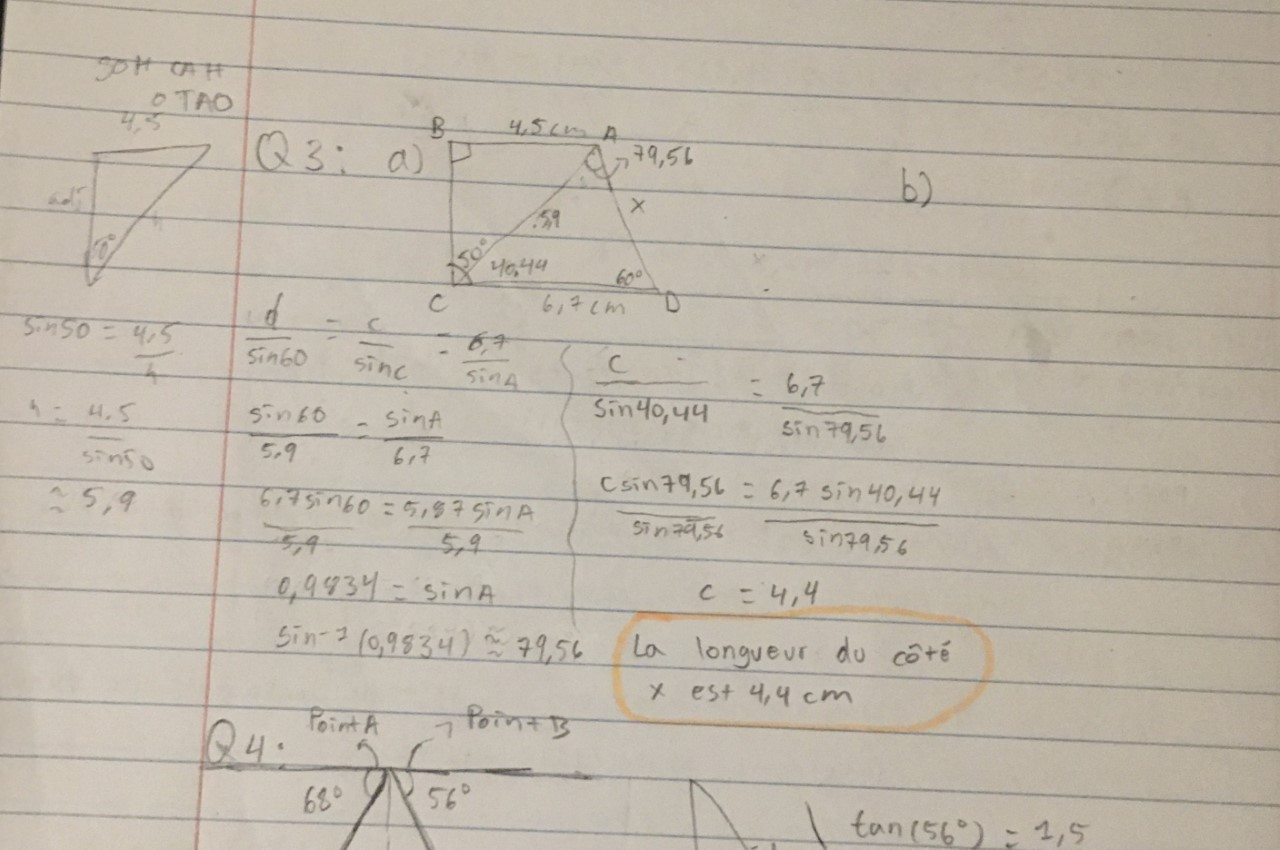 SOH CAH
TAO
4,5
adj
h
50°
sin50 = 4,5
h
h = 4,5
sin50
≈ 5,9
Q3: a)
B 4,5cm A
79,56
x
5,9
50°
40,44 60°
C 6,7cm D
b)
d = c = 6,7
sin60 sinc sinA
sin60 = sinA
5,9 6,7
6,7sin60 = 5,87sinA
5,9 5,9
0,9834 = sinA
sin-1 (0,9834) ≈ 79,56
C = 6,7
sin40,44 sin79,56
csin79,56 = 6,7 sin40,44
sin79,56 sin79,56
c = 4,4
La longueur du côté
x est 4,4 cm
Q4:
Point A Point B
68° 56°
tan(56°) = 1,5